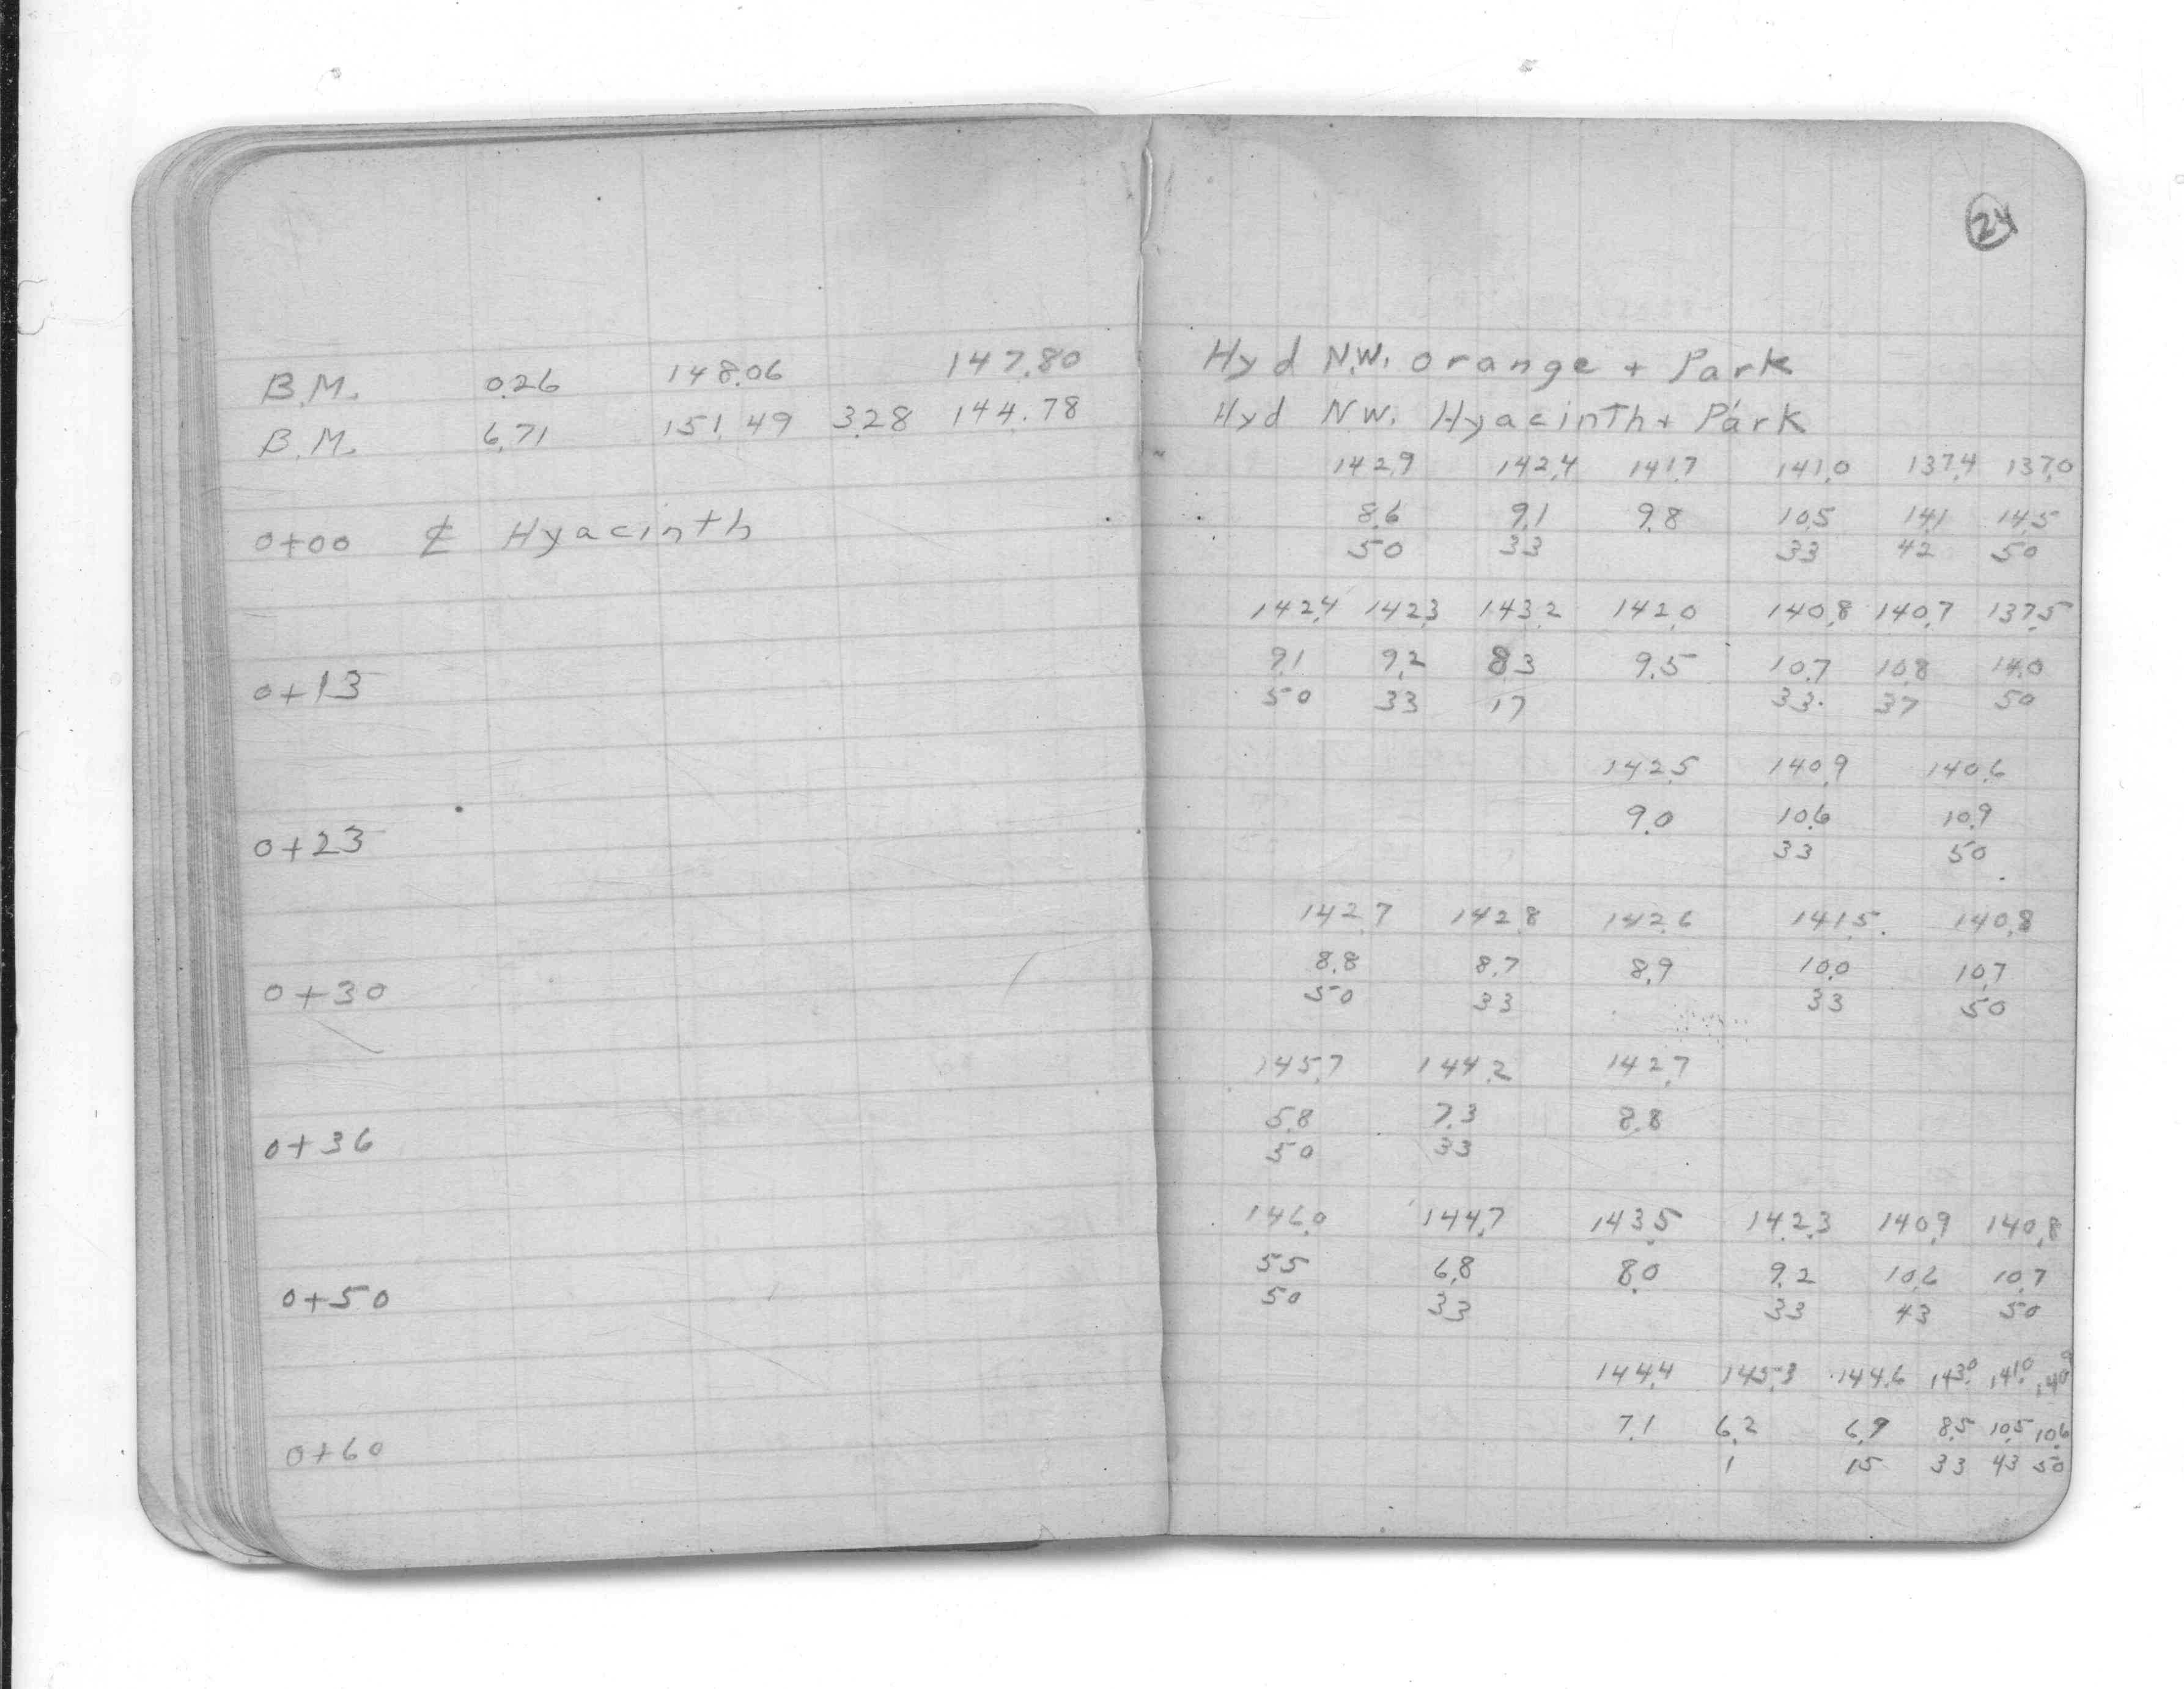 24
B.M. 0.26 148.06 147.80 Hyd N.W. orange + Park
B.M. 6.71 151.49 3.28 144.78 Hyd NW. Hyacinth + Park
142.9 142.4 141.7 141.0 137.4 137.0
0+00 ⅊ Hyacinth 8.6 9.1 9.8 10.5 14.1 14.5
50 33 33 42 50
142.4 142.3 143.2 142.0 140.8 140.7 137.5
0+13 9.1 9.2 8.3 9.5 10.7 10.8 14.0
50 33 17 33 37 50
142.5 140.9 140.6
0+23 9.0 10.6 10.9
33 50
142.7 142.8 142.6 141.5 140.8
0+30 8.8 8.7 8.9 10.0 10.7
50 33 33 50
145.7 144.2 142.7
0+36 5.8 7.3 8.8
50 33
146.0 144.7 143.5 142.3 140.9 140.8
0+50 5.5 6.8 8.0 9.2 10.6 10.7
50 33 33 43 50
144.4 145.3 144.6 143.0 141.0 140.9
0+60 7.1 6.2 6.9 8.5 10.5 10.6
1 15 33 43 50